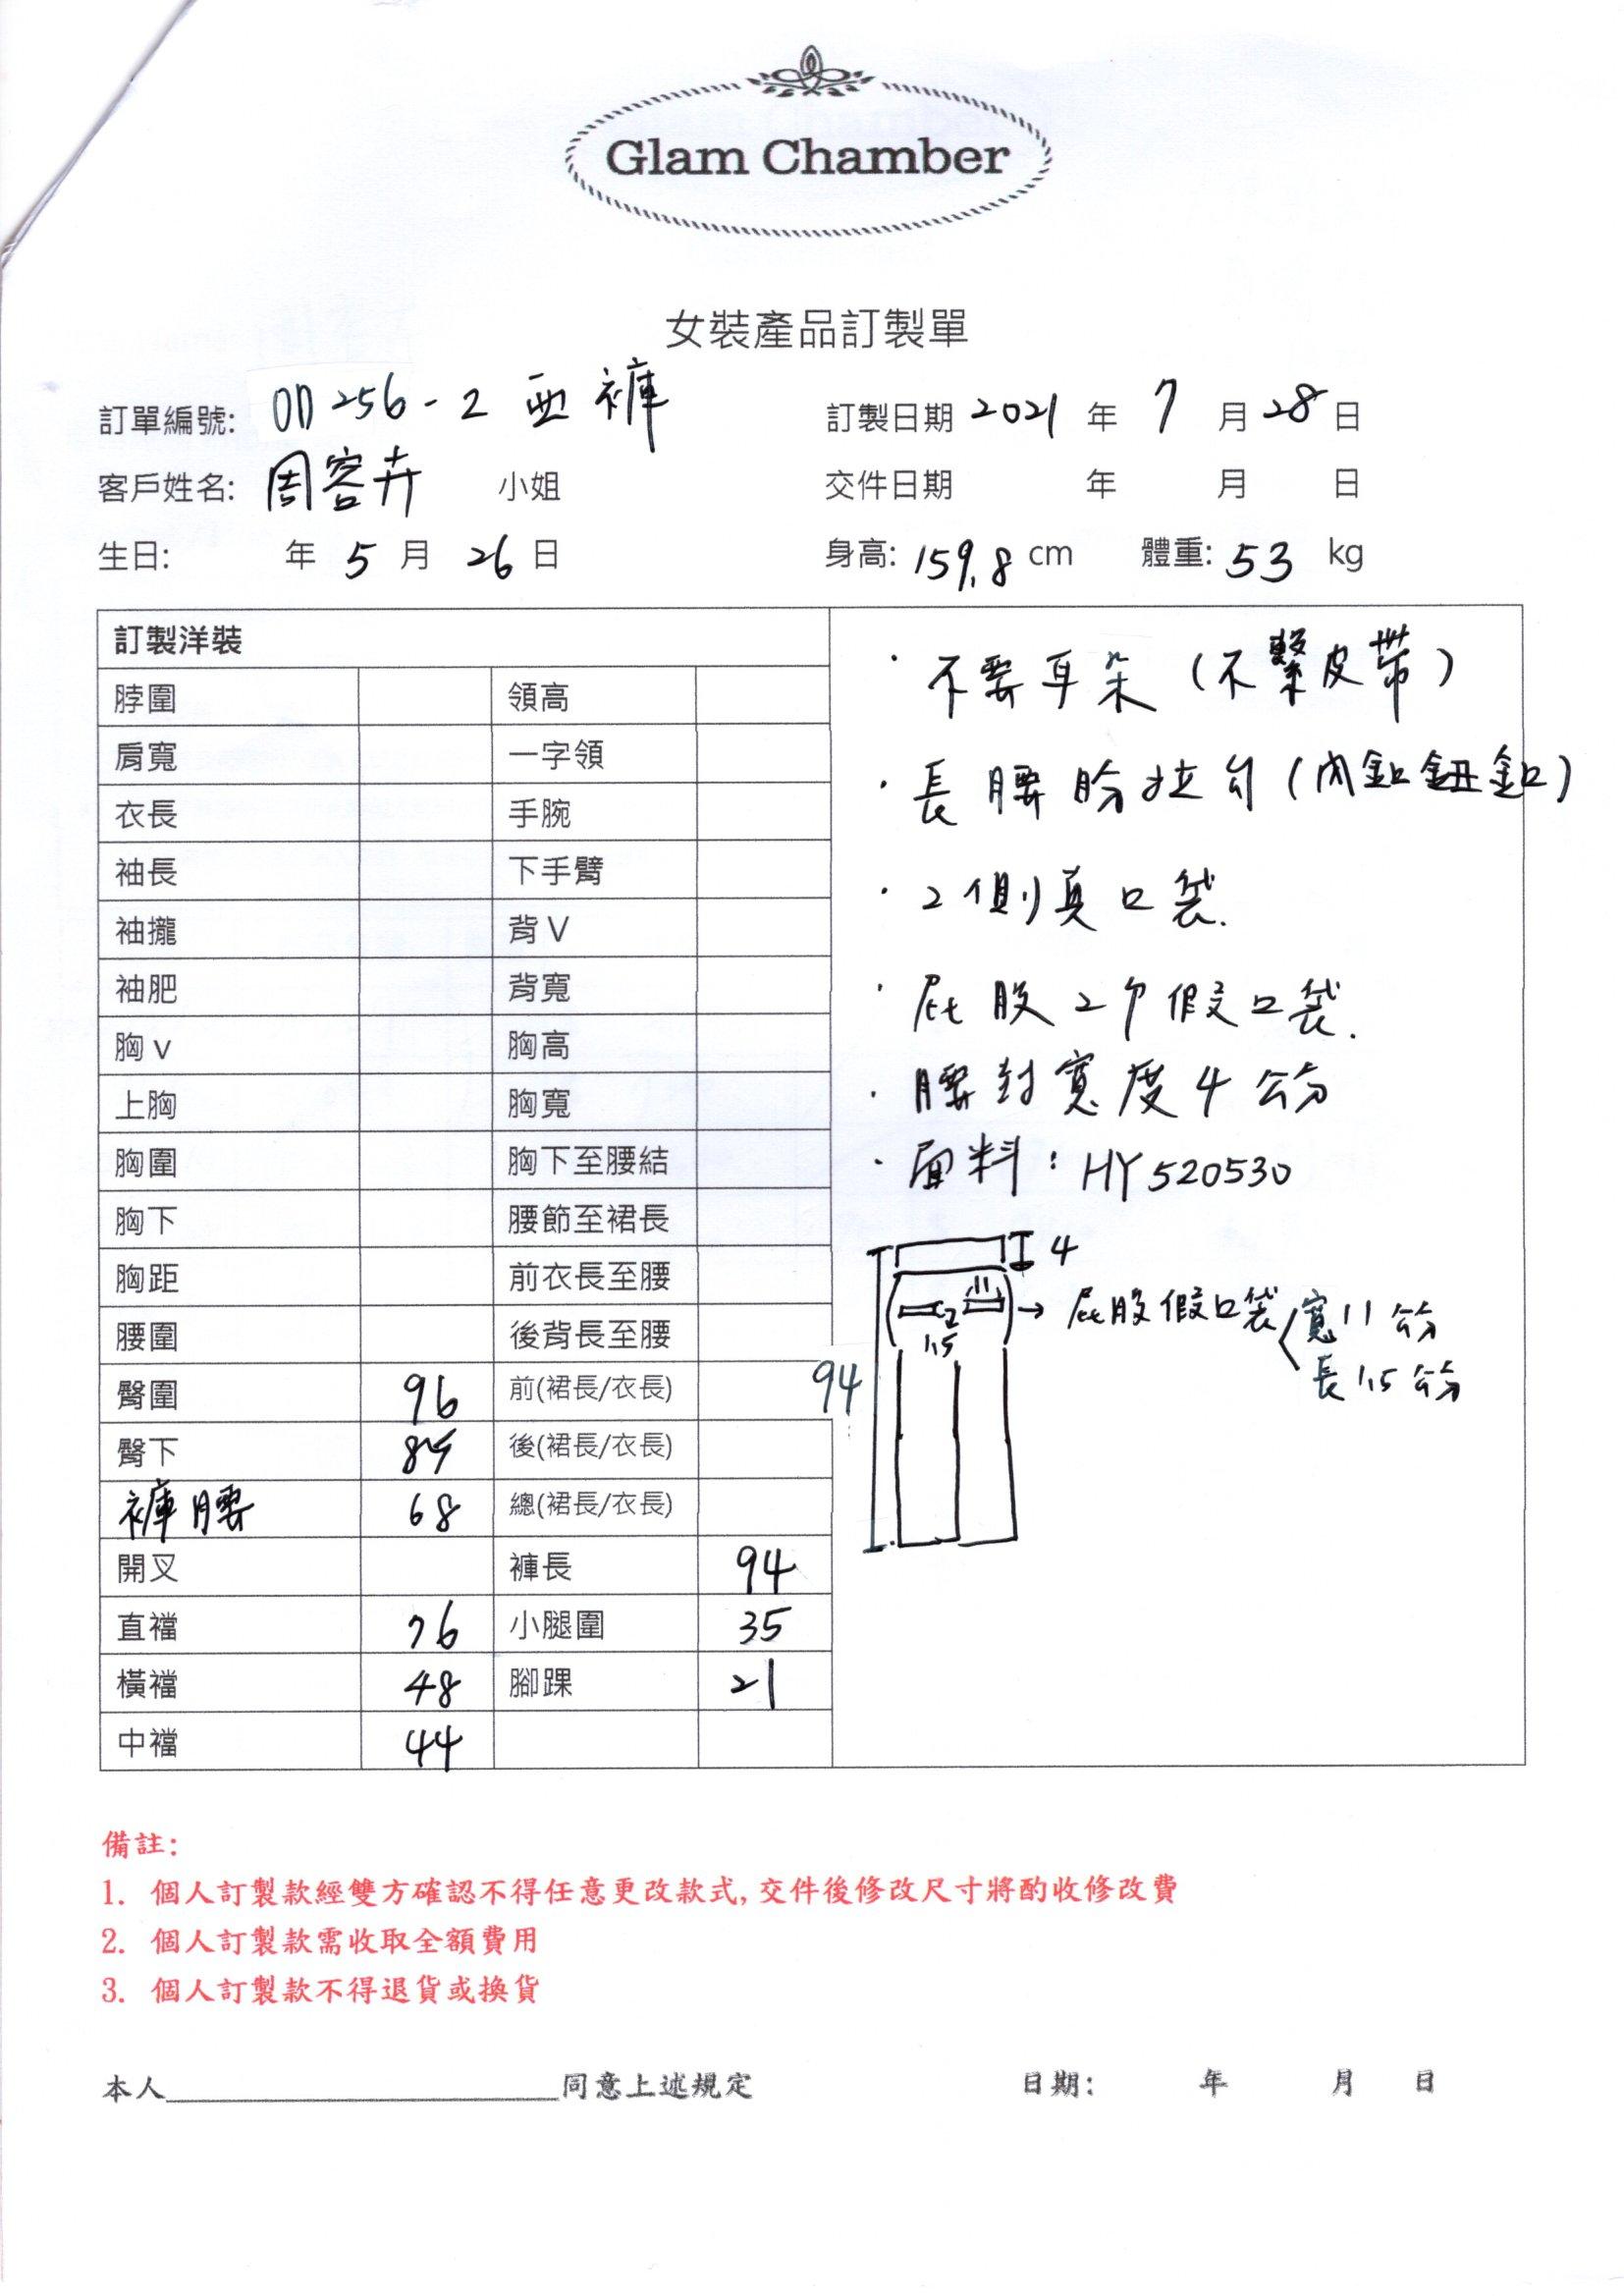 Glam Chamber
女裝產品訂製單
訂單編號: OD256-2 西褲 訂製日期 2021 年 7 月 28 日
客戶姓名: 周容卉 小姐 交件日期 年 月 日
生日: 年 5 月 26 日 身高: 159.8 cm 體重: 53 kg
訂製洋裝
脖圍 領高
肩寬 一字領
衣長 手腕
袖長 下手臂
袖攏 背V
袖肥 背寬
胸v 胸高
上胸 胸寬
胸圍 胸下至腰結
胸下 腰節至裙長
胸距 前衣長至腰
腰圍 後背長至腰
臀圍 96 前(裙長/衣長)
臀下 後(裙長/衣長)
褲腰 68 總(裙長/衣長)
開叉 褲長 94
直襠 76 小腿圍 35
橫襠 48 腳踝 21
中襠 44
· 不要耳朵 (不繫皮帶)
· 長腰 拉勾 (內釦鈕釦)
· 2側真口袋.
· 屁股2个假口袋.
· 腰封寬度4公分
· 面料: HY520530
4
11
1.5
94
→ 屁股假口袋 寬11公分
長1.5公分
備註:
1. 個人訂製款經雙方確認不得任意更改款式, 交件後修改尺寸將酌收修改費
2. 個人訂製款需收取全額費用
3. 個人訂製款不得退貨或換貨
本人____________________同意上述規定 日期: 年 月 日